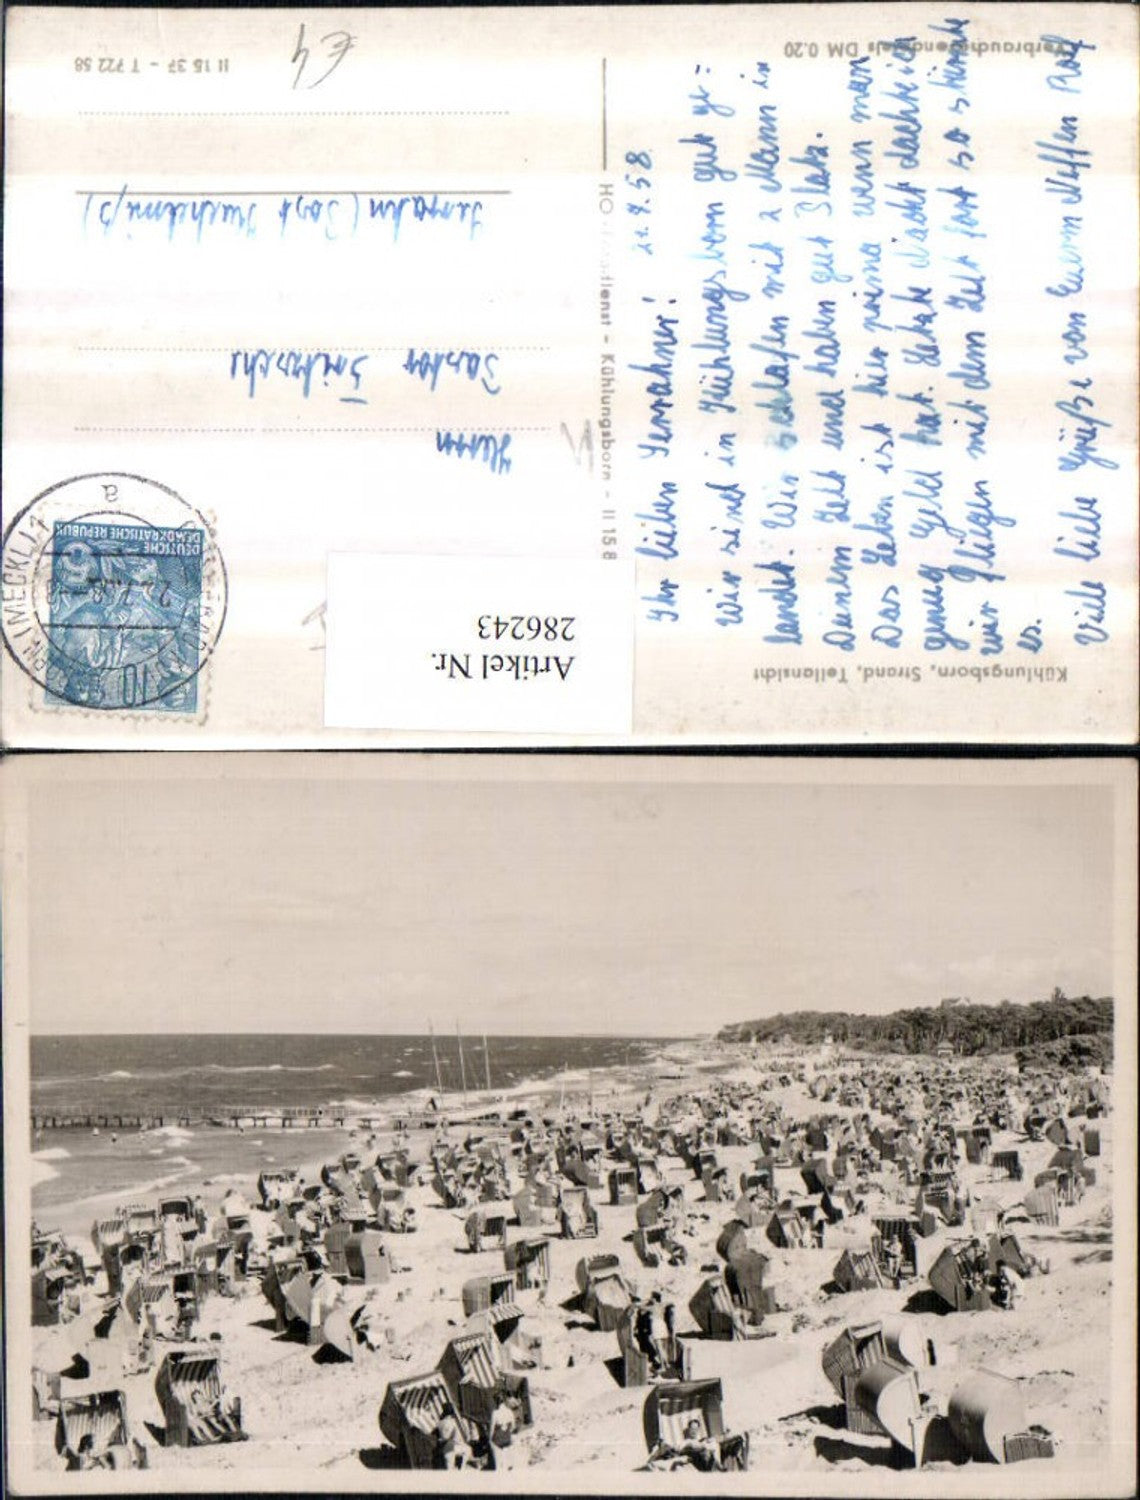 Kühlungsborn, Strand, Teilansicht
Verbraucherpreis DM 0.20
21.7.58
Ihr lieben Serrahner!
Wir sind in Kühlungsborn gut ge-
landet. Wir schlafen mit 2 Mann in
Deinem Zelt und haben gut Platz.
Das Leben ist hier prima wenn man
genug Geld hat. Letzte Nacht dachte ich
wir fliegen mit dem Zelt fort so stürmte
es.
Viele liebe Grüße von Euerm Neffen Rolf
Kühlungsborn - II 15 8
DEUTSCHE
DEMOKRATISCHE REPUBLIK
5
10
a
Herrn
Pastor Fritzsche
Serrahn (Post Kuchelmiß)
II 15 37 - T 722 58
€ 4
Artikel Nr.
286243